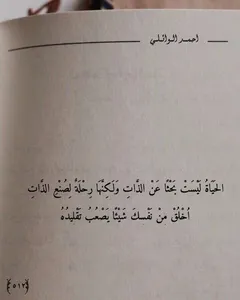 أحمد الوائلي
الحَيَاةُ لَيْسَتْ بَحْثًا عَنْ الذَّاتِ وَلَكِنَّهَا رِحْلَةٌ لِصُنْعِ الذَّاتِ
اُخْلُقْ مِنْ نَفْسِكَ شَيْئًا يَصْعُبُ تَقْلِيدُهُ
﴿٥١٢﴾